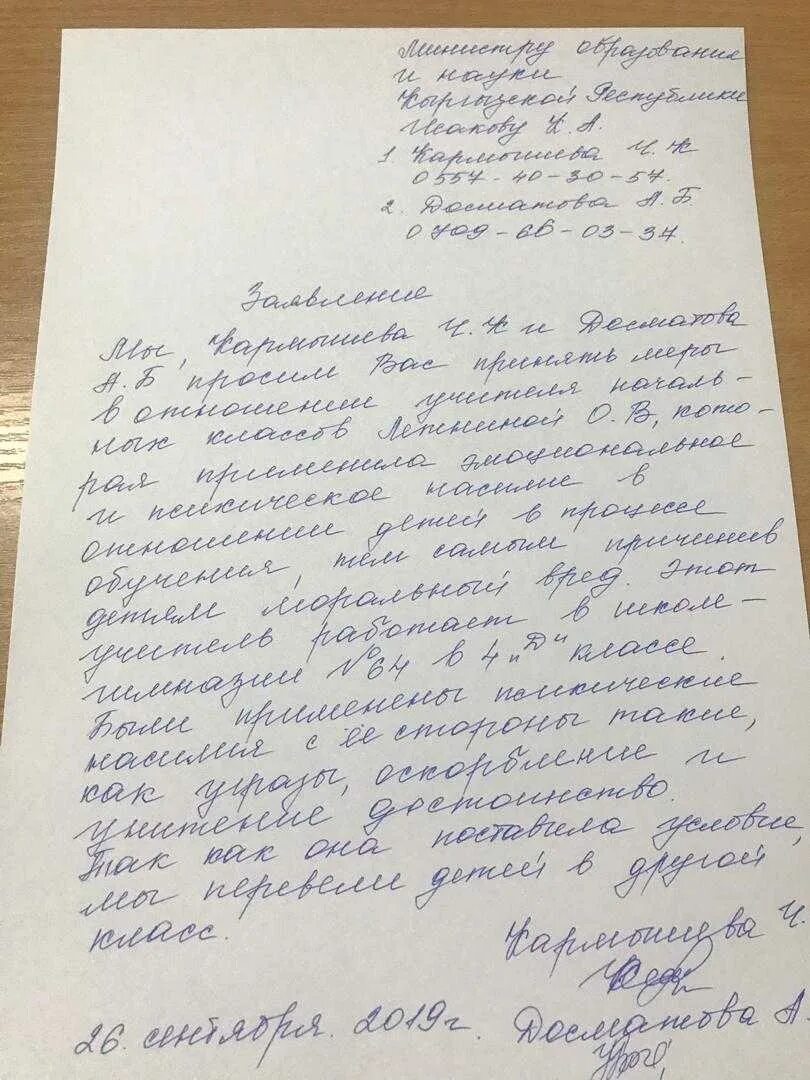 Министру образование
и науки
Кыргызской Республики
Исакову К. А.
1. Кармышева Ч. К
0557-40-30-57.
2. Досматова А. Б.
0709-66-03-37.
Заявление
Мы, Кармышева Ч. К и Досматова
А. Б просим Вас принять меры
в отношении учителя началь-
ных классов Летниной О. В, кото-
рая применила эмоциональное
и психическое насилие в
отношении детей в процессе
обучения, тем самым причинив
детям моральный вред. Этот
учитель работает в школе-
гимназии №64 в 4 „Д" классе.
Были применены психические
насилия с её стороны такие,
как угрозы, оскорбление и
унитение достоинство.
Так как она поставила условие,
мы перевели детей в другой
класс.
Кармышева Ч.
26. сентября. 2019г. Досматова А.